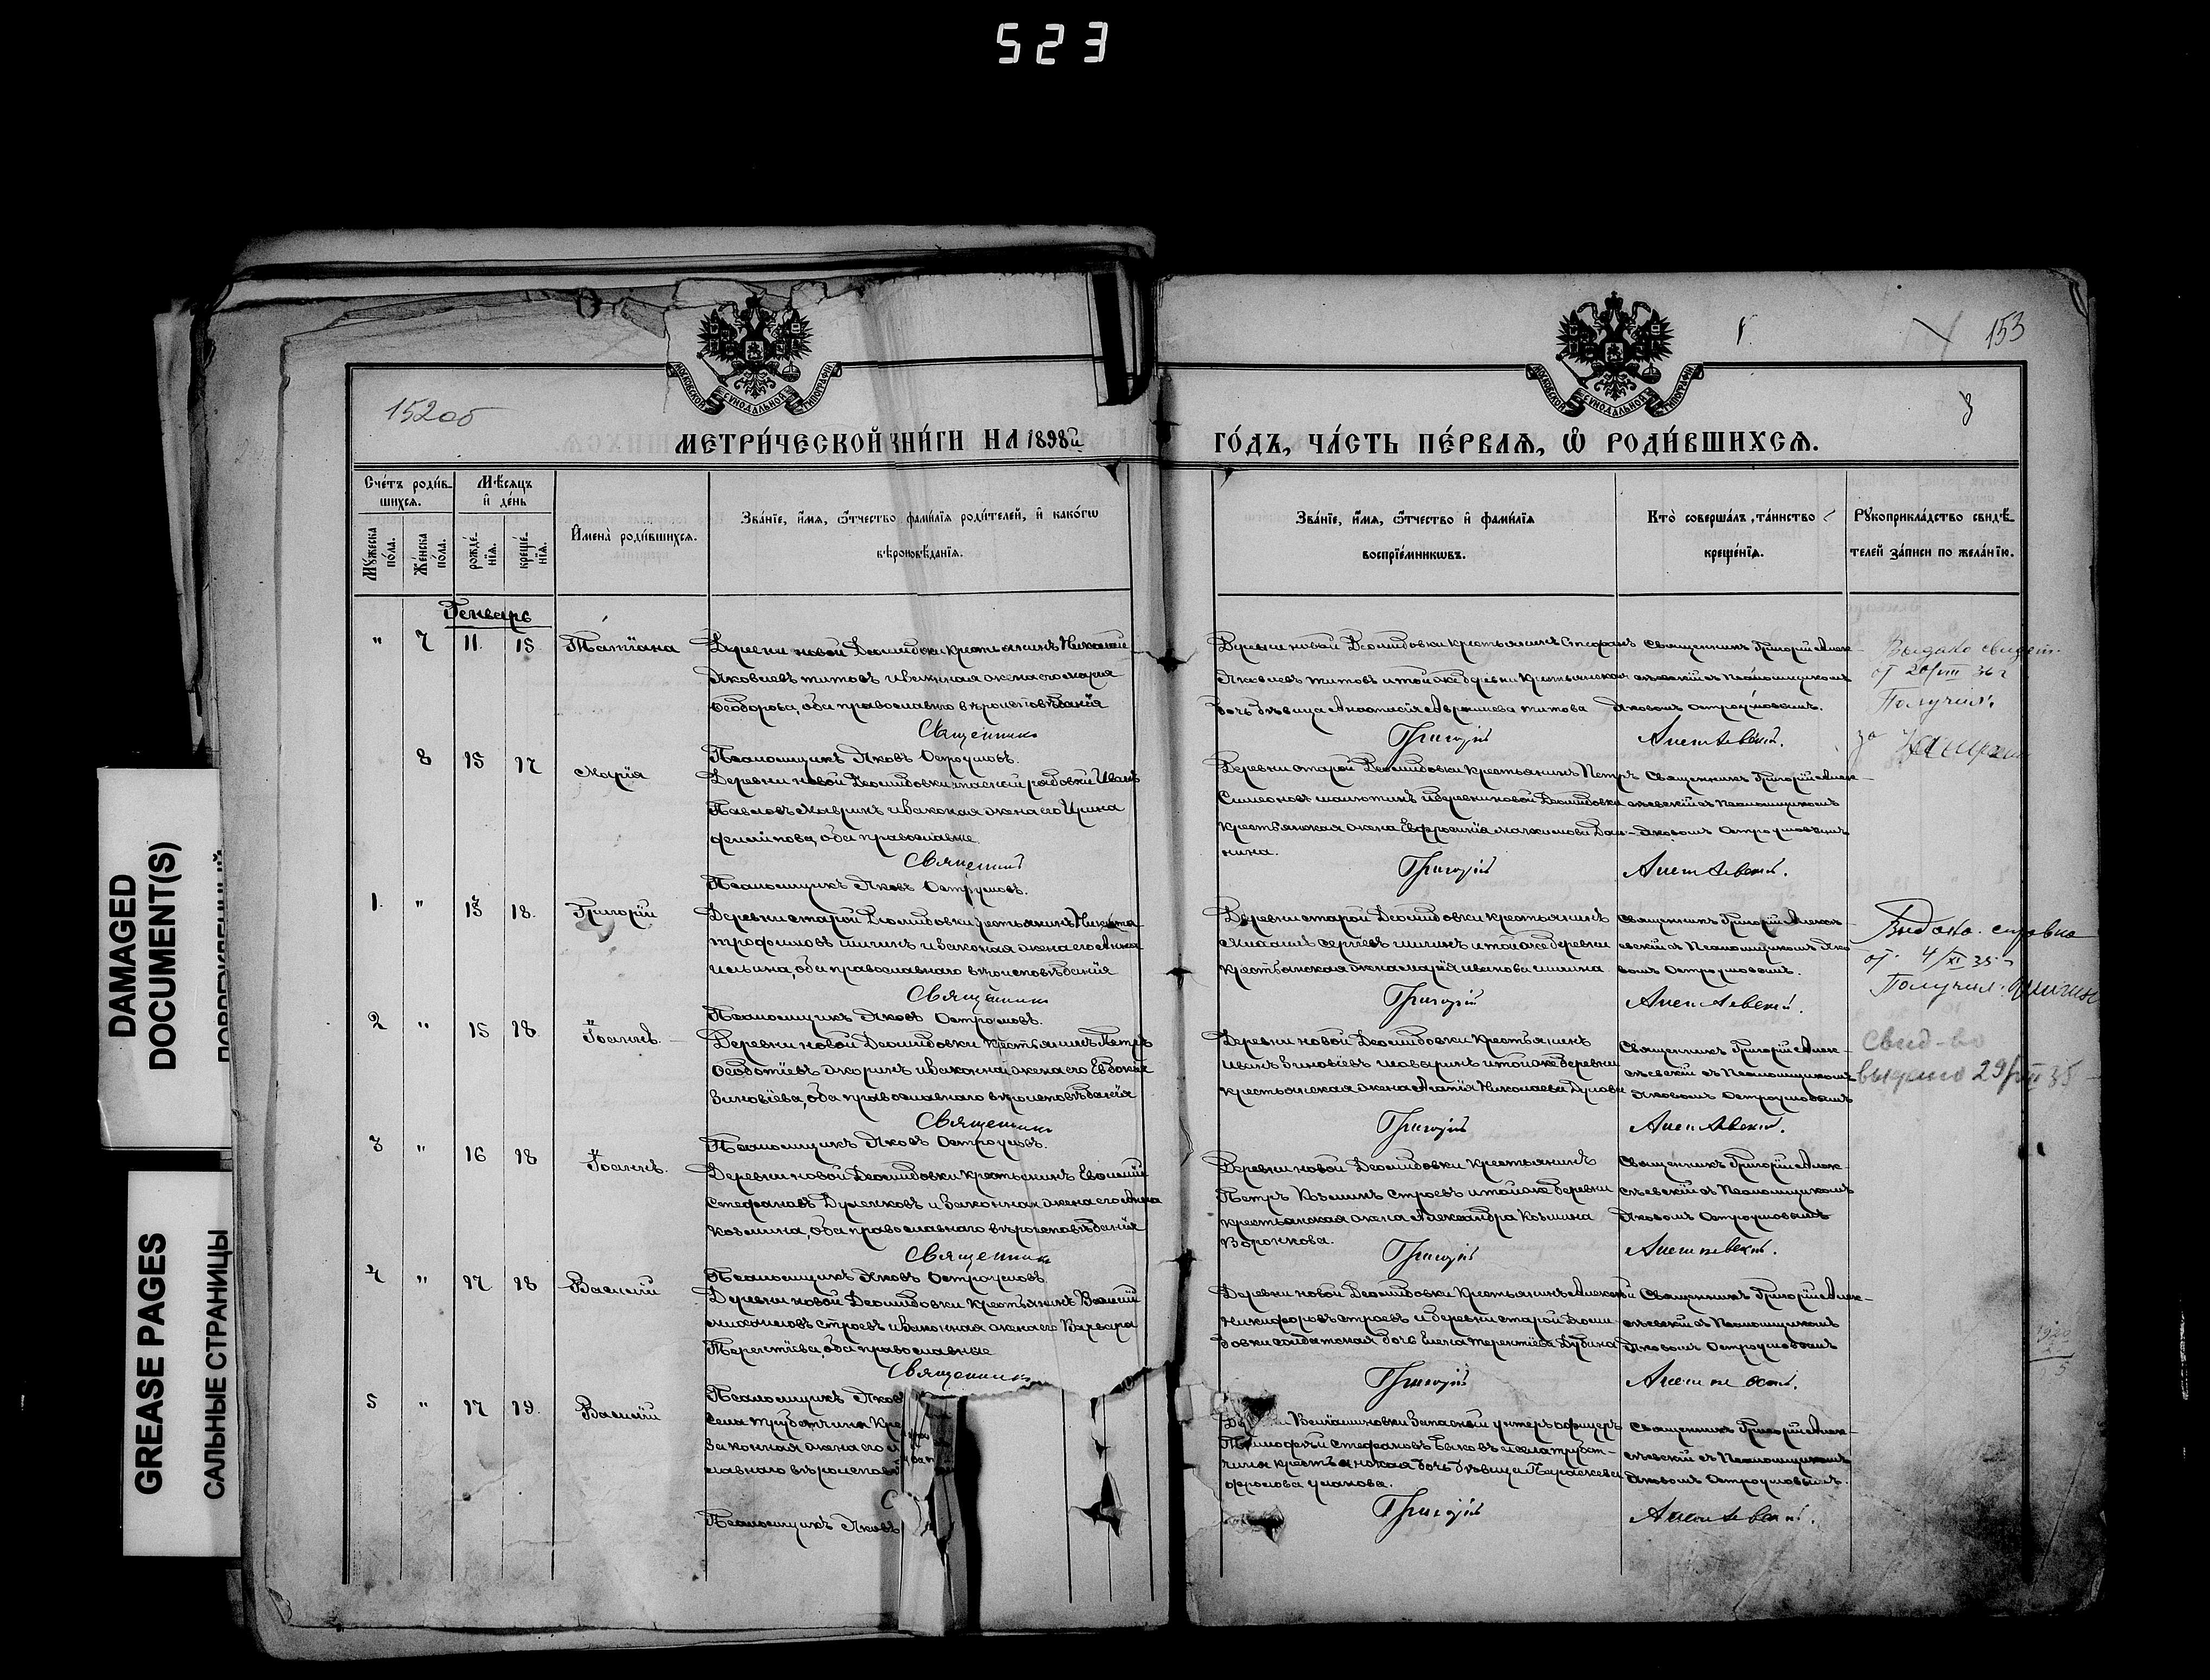 523
153
152об
3
МОСКОВСКОЙ СУНОДАЛЬНОЙ ТИПОГРАФІИ
МОСКОВСКОЙ СУНОДАЛЬНОЙ ТИПОГРАФІИ
МЕТРИ́ЧЕСКОЙ КНИ́ГИ НА 1898й
ГО́ДЪ, ЧА́СТЬ ПЕ́РВАЯ, Ѽ РОДИ́ВШИХСЯ.
Сче́тъ роди́в-
шихся.
Мѣ́сяцъ
и҆ де́нь
Мꙋ́жеска по́ла.
Же́нска по́ла.
рожде́-
нїя.
креще́-
нїя.
И҆мена̀ роди́вшихся.
Зва́нїе, и҆́мя, ѻ҆́тчество фами́лїя роди́телей, и҆ како́гѡ
вѣроиовѣ́данїя.
Зва́нїе, и҆́мя, ѻ҆́тчество и҆ фами́лїя
воспрїе́мникѡвъ.
Кто̀ соверша́лъ та́инство
креще́нїя.
Рꙋкоприкла́дство свидѣ́-
телей за́писи по жела́нїю.
Генварь
" 7 11. 15 Татіана
Деревни новой Деомидовки крестьянинъ Николай
Яковлевъ Титовъ и законная жена его Марія
Ѳеодорова, оба православнаго вѣроисповѣданія
Священникъ
Псаломщикъ Яковъ Остроумовъ.
Деревни новой Деомидовки крестьянинъ Стефанъ
Яковлевъ Титовъ и той же деревни крестьянская
дочь дѣвица Анастасія Титова
Григорій
Священникъ Григорій Алек-
сѣевскій съ Псаломщикомъ
Яковомъ Остроумовымъ.
Алексѣевскій.
Выдано свидет.
от 20/VIII 36 г
Получил:
8 15 17 Марія
Деревни новой Деомидовки запасный рядовой Иванъ
Павловъ Мавринъ и законная жена его Ирина
Филипова, оба православные.
Священникъ
Псаломщикъ Яковъ Остроумовъ.
Деревни старой Деомидовки крестьянинъ Петръ
Симеоновъ и деревни новой Деомидовки
крестьянская жена Евфросинія
нина.
Григорій
Священникъ Григорій Алек-
сѣевскій съ Псаломщикомъ
Яковомъ Остроумовымъ
Алексѣевскій.
1. " 13 18. Григорій
Деревни старой Деомидовки крестьянинъ Никита
Трофимовъ Шигинъ и законная жена его Анна
Ильина, оба православнаго вѣроисповѣданія
Священникъ
Псаломщикъ Яковъ Остроумовъ.
Деревни старой Деомидовки крестьянинъ
Михаилъ Сергіевъ Шигинъ и той же деревни
крестьянская жена Марія Иванова Шигина
Григорій
Священникъ Григорій Алексѣ-
евскій съ Псаломщикомъ Яко-
вомъ Остроумовымъ.
Алексѣевскій.
Выдана справка
от 4/XI 35 г
Получил: Шигин
2 " 15 18. Іоаннъ.
Деревни новой Деомидовки крестьянинъ Петръ
и законная жена его Евдокія
Зиновіева, оба православнаго вѣроисповѣданія
Священникъ
Псаломщикъ Яковъ Остроумовъ.
Деревни новой Деомидовки крестьянинъ
Иванъ Зиновіевъ и той же деревни
крестьянская жена Агапія Николаева
Григорій
Священникъ Григорій Алек-
сѣевскій съ Псаломщикомъ
Яковомъ Остроумовымъ
Алексѣевскій.
Свид-во
выдано 29/VIII 35
3 " 16 18 Іоаннъ.
Деревни новой Деомидовки крестьянинъ Евдокимъ
Стефановъ и законная жена его Анна
Козмина, оба православнаго вѣроисповѣданія
Священникъ
Псаломщикъ Яковъ Остроумовъ
Деревни новой Деомидовки крестьянинъ
Петръ Козминъ Строевъ и той же деревни
крестьянская жена Александра Козмина
Воронкова.
Григорій
Священникъ Григорій Алек-
сѣевскій съ Псаломщикомъ
Яковомъ Остроумовымъ
Алексѣевскій.
4 " 17 18 Василій
Деревни новой Деомидовки крестьянинъ Василій
Михаиловъ Строевъ и законная жена его Варвара
Терентіева, оба православные
Священникъ
Псаломщикъ Яков
Деревни новой Деомидовки крестьянинъ Алексѣй
Никифоровъ Строевъ и деревни старой Деоми-
довки солдатская дочь Елена Терентіева Дубина
Григорій
Священникъ Григорій Алек-
сѣевскій съ Псаломщикомъ
Яковомъ Остроумовымъ
Алексѣевскій.
5 " 17 19. Василій
Села Трубетчина Кре
Законная жена его
славнаго вѣроисповѣ
С
Псаломщикъ Яковъ
Веніаминовки запасный унтеръ офицеръ
Тимофей Стефановъ Быковъ и села Трубет-
чина крестьянская дочь дѣвица Параскева
Фролова Ушакова.
Григорій
Священникъ Григорій Алек-
сѣевскій съ Псаломщикомъ
Яковомъ Остроумовымъ.
Алексѣевскій.
DAMAGED
DOCUMENT(S)
GREASE PAGES
САЛЬНЫЕ СТРАНИЦЫ